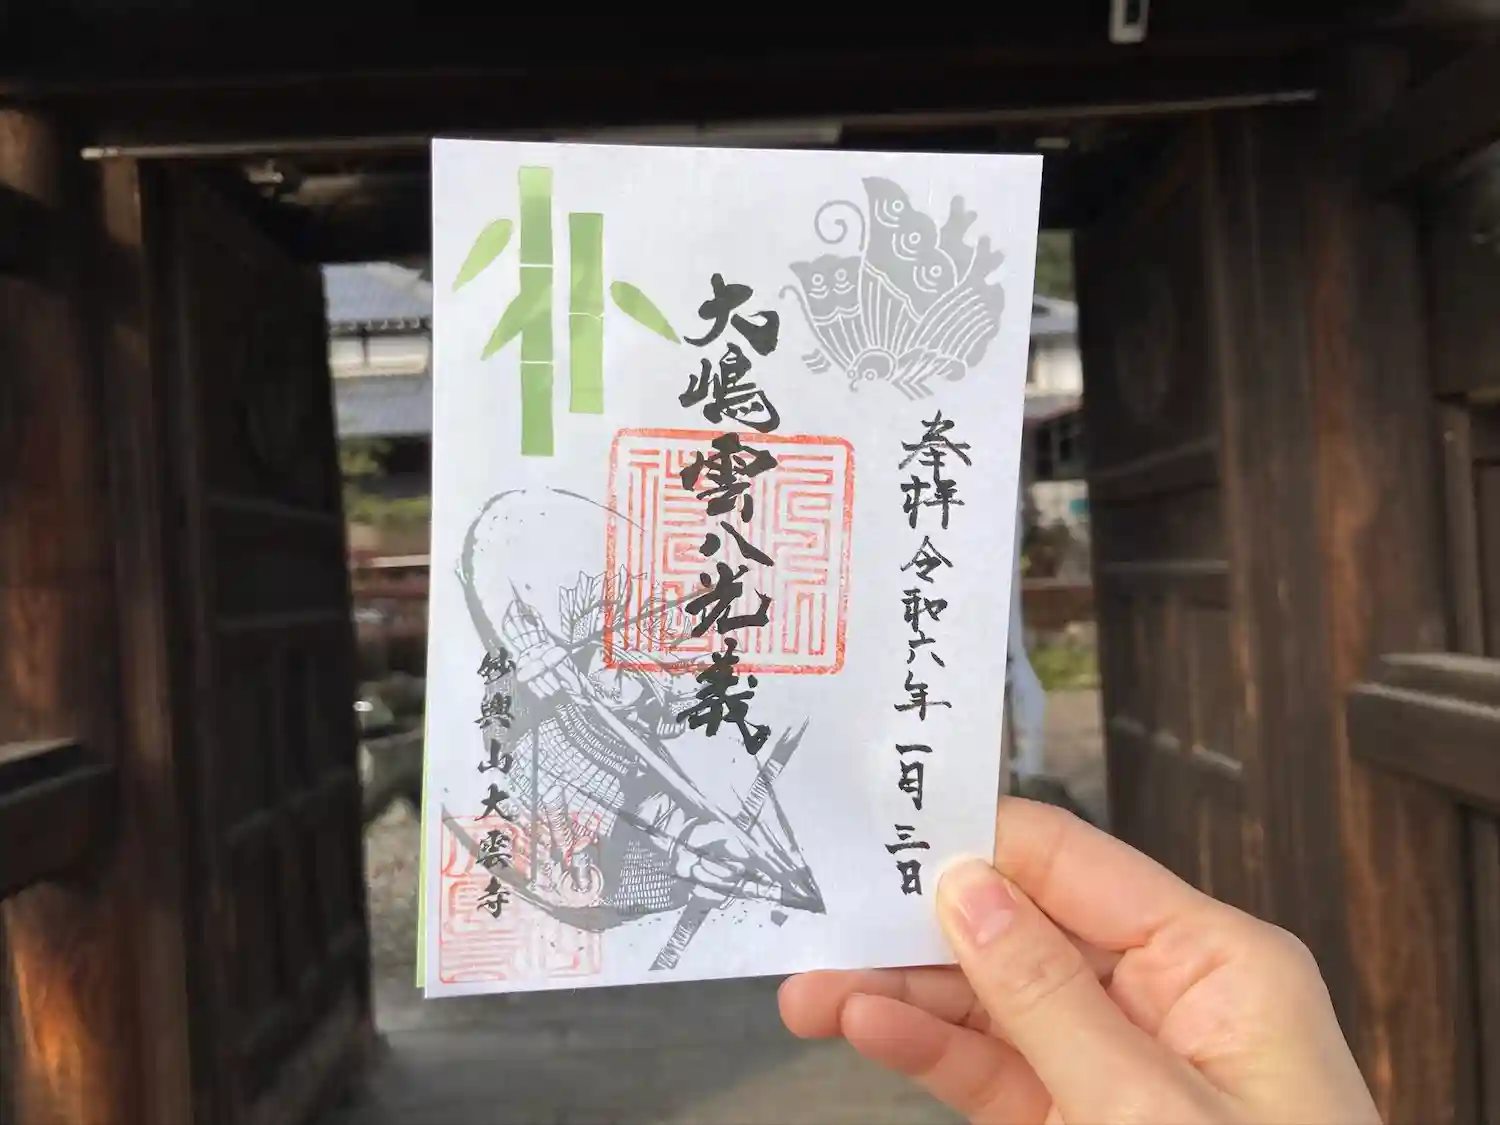 奉拝 令和六年 一月 三日
大嶋雲八光義
妙興山大雲寺